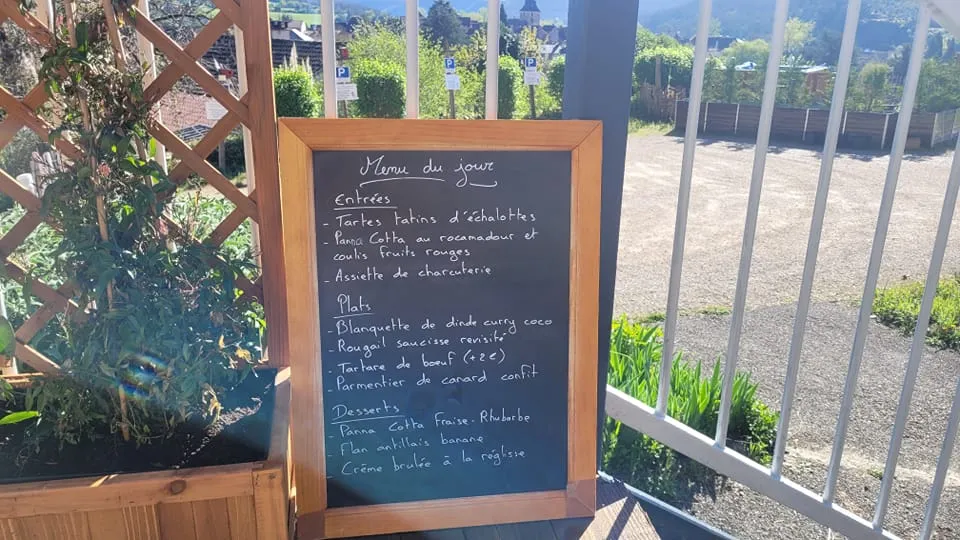 Menu du jour
Entrées
- Tartes tatins d'échalottes
- Panna Cotta au rocamadour et
coulis fruits rouges
- Assiette de charcuterie
Plats
- Blanquette de dinde curry coco
- Rougail saucisse revisité
- Tartare de boeuf (+2€)
- Parmentier de canard confit
Desserts
- Panna Cotta Fraise-Rhubarbe
- Flan antillais banane
- Crème brulée à la réglisse
P
P
P